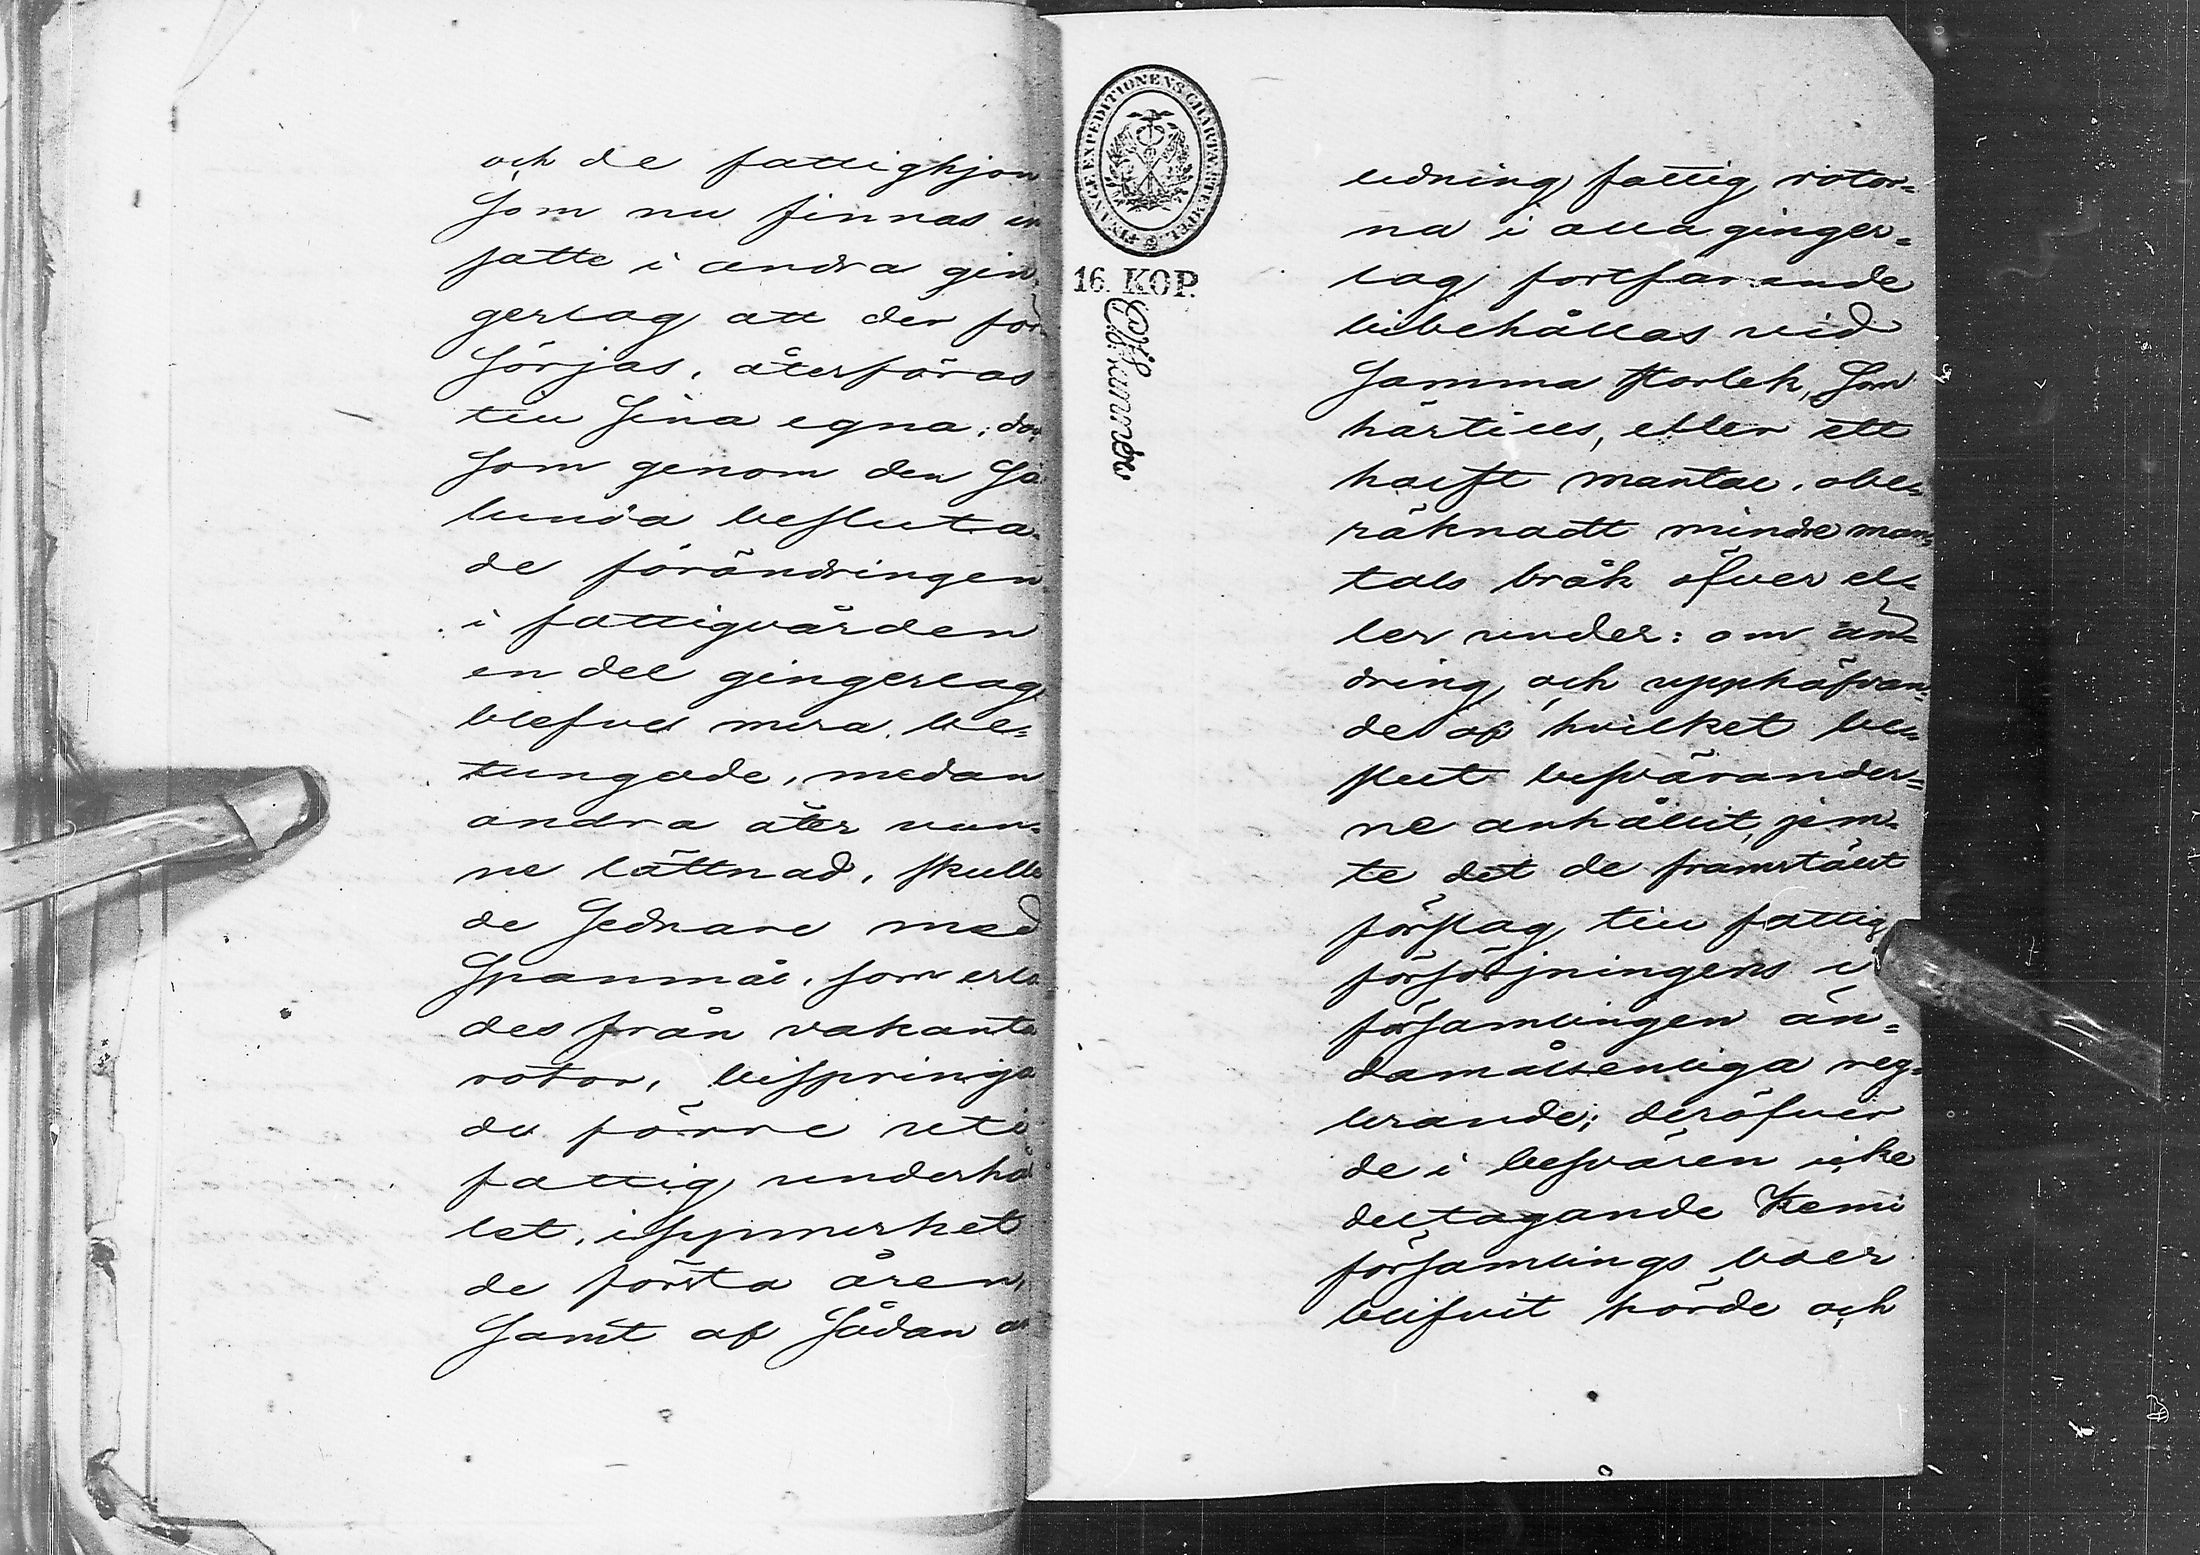 och de fattighjon
som nu finnas in
satte i andra gin¬
gerlag att der för
sörjas, återföras
till sina egna; der
som genom den så
lunda besluta¬
de förändringen
i fattigvården
en del gingerlag
blefve mera be¬
tungade, medan
andra åter vun¬
ne lättnad, skulle
de sednare med
spanmål, som erla
des från vakanta
rotor, bispringa
de förre uti
fattig underhål
let, i synnerhet
de första åren,
samt af sådan an
FINANCE EXPEDITIONENS CHARTÆ STEMPEL
16. KOP.
ledning fattig rotor¬
na i alla ginger¬
lag fortfarande
bibehållas vid
samma storlek, som
härtills, eller ett
halft mantal, obe¬
räknadt mindre man¬
tals bråk öfver el¬
ler under: om än¬
dring och upphäfvan¬
de af hvilket be¬
slut besvärander¬
ne anhållit, jem¬
te det de framstält
förslag till fattig
försörjningens i
församlingen än¬
damålsenliga reg¬
lerande; deröfver
de i besvären icke
deltagande Kemi
församlings boer
blifvit hörde och